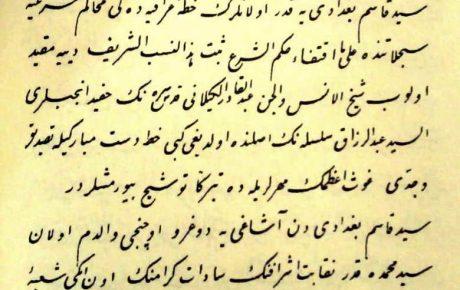 سید قاسم بغدادی یه قدر اولانلرك خطۀ عراقیه ده کی محاکم شرعیه
سجلاتنده علی ما اقتضاء حکم الشرع ثبت بذا النسب الشریف دییه مقید
اولوب شیخ الانس والجن عبدالقادر الکیلانی قدس سره نك حفید انجبلری
السید عبد الرزاق سلسله نك اصلنده اولدیغی کبی خط دست مبارکیله تصدیق
وجدی غوث اعظمك مهرلریله ده تبرکا توشیح بیورمشلردر
سید قاسم بغدادی دن آشاغی یه دوغرو اوچنجی والدم اولان
سید محمده قدر نقابت اشرافنك سادات کرامنك اون ایکی شعبۀ